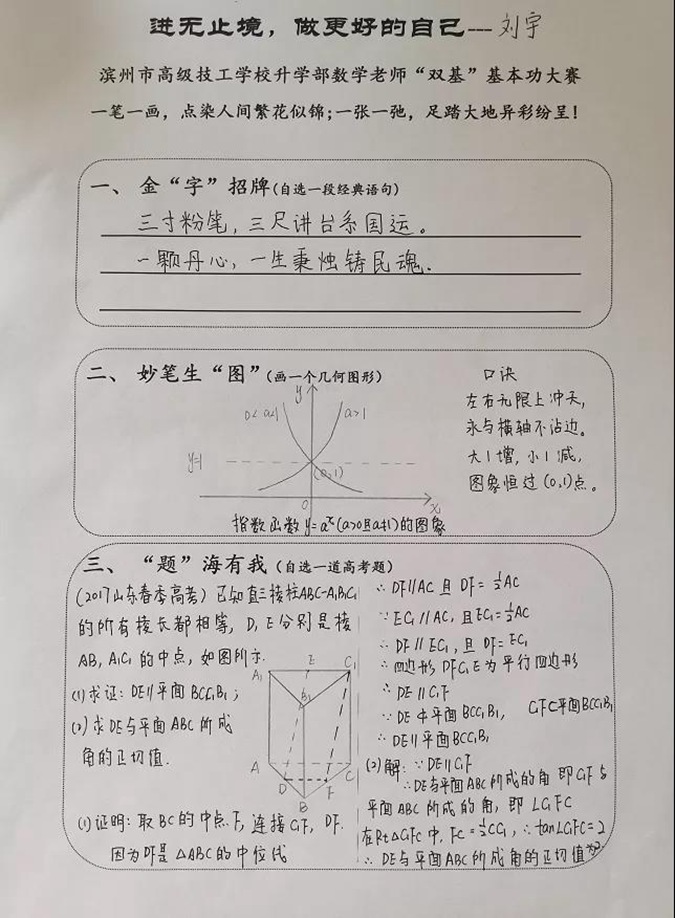 进无止境，做更好的自己---刘宇
滨州市高级技工学校升学部数学老师“双基”基本功大赛
一笔一画，点染人间繁花似锦;一张一弛，足踏大地异彩纷呈!
一、金“字”招牌(自选一段经典语句)
三寸粉笔,三尺讲台系国运。
一颗丹心,一生秉烛铸民魂.
二、妙笔生“图”(画一个几何图形)
y
0<a<1
a>1
y=1
(0,1)
0
x
指数函数y=aˣ(a>0且a≠1)的图象
口诀
左右无限上冲天,
永与横轴不沾边。
大1增,小1减,
图象恒过(0,1)点。
三、“题”海有我(自选一道高考题)
(2017山东春季高考)已知直三棱柱ABC-A₁B₁C₁
的所有棱长都相等,D,E分别是棱
AB,A₁C₁的中点,如图所示.
(1)求证:DE∥平面BCC₁B₁;
(2)求DE与平面ABC所成
角的正切值.
A₁
E
C₁
B₁
A
C
D
F
B
(1)证明:取BC的中点F,连接C₁F,DF.
因为DF是△ABC的中位线
∴DF∥AC且DF=½AC
∵EC₁∥AC,且EC₁=½AC
∴DF∥EC₁,且DF=EC₁
∴四边形DFC₁E为平行四边形
∴DE∥C₁F
∵DE⊄平面BCC₁B₁, C₁F⊂平面BCC₁B₁
∴DE∥平面BCC₁B₁
(2)解:∵DE∥C₁F
∴DE与平面ABC所成的角即C₁F与
平面ABC所成的角,即∠C₁FC
在Rt△C₁FC中,FC=½CC₁,∴tan∠C₁FC=2
∴DE与平面ABC所成角的正切值为2.